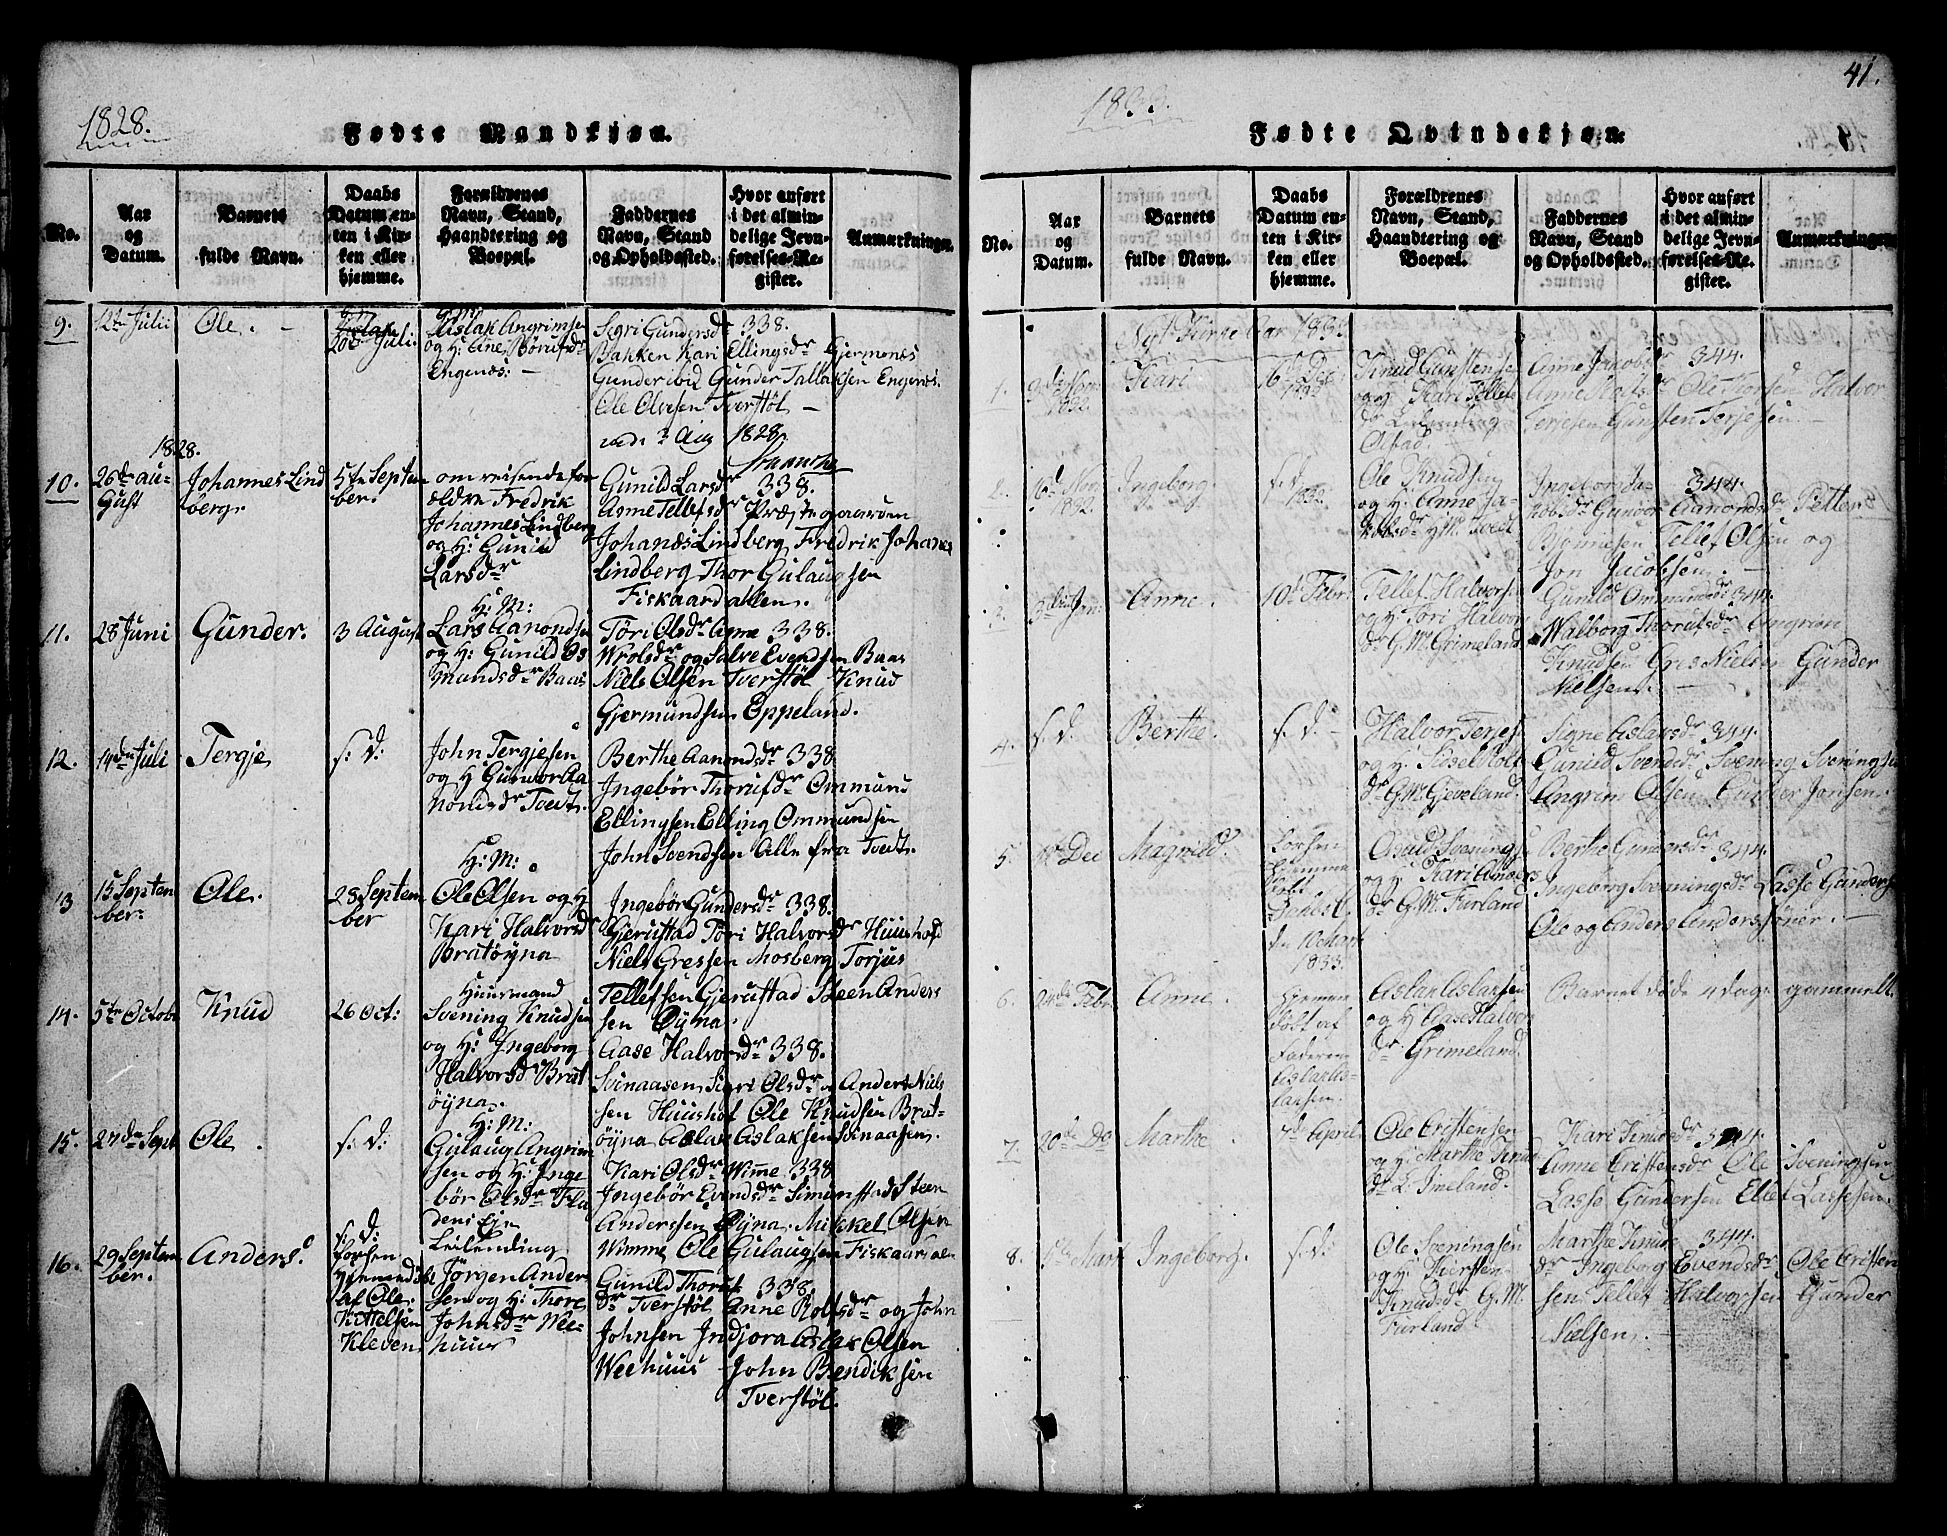 1828.
Fødte Mandkjøn.
No.
Aar og Datum.
Barnets fulde Navn.
Daabs Datum enten i Kirken eller hjemme.
Forældrenes Navn, Stand, Haandtering og Boepæl.
Faddernes Navn, Stand og Opholdssted.
Hvor anført i det almindelige Jevnførelses-Register.
Anmærkninger.
9.
12te Julii
Ole.
20de Juli.
G: M:
Aslak Angrimsen
og H: Ane Børufsdr
Engenæs:
Segri Gundersdr 338.
Bakken Kari Ellingsdr Gjermenes
Gunder ibid Gunder Tallaksen Engenes.
Ole Olvesen Tverstøl
Aug 1828
1828.
10.
26de au-
Gust
Johannes Lind
berg.
5te Septem
ber.
om reisende for
ældre Fredrik
Johannes Lindberg
og H: Gunild
Larsdr
Gunild Larsdr 338.
Asme Tellefsdr Præstegaarden
Johanes Lindberg Fredrik Johanes
Lindberg Thor Gulaugsen
Fiskaardallen.
11.
28 Juni
Gunder.
3 August
H: M:
Lars Aanondsen
og H: Gunild Os
mundsdr Baas
Töri Olsdr Anne 338.
Wrolsdr og Salve Evendsen Baas
Niels Olsen Tverstøl Knud
Gjermundsen Eppeland.
12.
14de Juli
Tergje
s: D:
John Tergjesen
og H Gunvor Aa
nonsdr Tvedt.
Berthe Aanondsdr 338
Ingebör Thorufsdr Ommund
Ellingsen Elling Ommundsen
John Svendsen Alle fra Tvedt.
13
15 Septem
ber.
Ole.
28 Septem
ber
H: M:
Ole Olsen og H
Kari Halvorsdr
Bratøyna
Ingebör Gundersdr 338.
Gjerustad Töri Halvorsdr Huushof
Niels Gressen Mosberg Torjus
Tellefsen Gjerustad Steen Anders
sen Øyna.
14.
5te Octobr
Knud
26 Oct:
Huusmand
Svening Knudsen
og H: Ingeborg
Halvorsdr Brat
öyna.
Aase Halvorsdr 338.
Svinaasen Sigri Olsdr Anders Niels
sen Huushof Ole Knudsen Brat-
öyna Aslak Aslaksen Svinaasen.
15.
27de Sept
Ole.
s: D:
H: M:
Gulaug Angrim
sen og H: Inge
bör Olsdr Fla
dens Eje
Kari Olsdr Wimme 338
Ingebör Evendsdr Simunstad Steen
Anderssen Øyna. Mikkel Olsen
Wimme Ole Gulaugsen Fiskaardalen
16.
29 Septem
ber.
Anders.
s: D:
af Ole
Kittelsen
Kleven
Leilending
Jörgen Ander
sen og H: Thore
Johnsdr Wee-
huus
Gunild Thorst 338
dr Tverstöl Anne Rolfsdr og John
Johnsen Indjora Aslak Olsen
Weehuus John Bendiksen
Tverstøl.
41.
1833.
Fødte Qvindekjøn.
No.
Aar og Datum.
Barnets fulde Navn.
Daabs Datum enten i Kirken eller hjemme.
Forældrenes Navn, Stand, Haandtering og Boepæl.
Faddernes Navn, Stand og Opholdssted.
Hvor anført i det almindelige Jevnførelses-Register.
Anmærkninger.
Nyt Kirke Aar
1.
1832.
Kari
Knud Gunstensen
og H: Kari Tellefs
Anne Jacobsdr 344.
Ole Torsen Halvor
Terjesen Gunsten Terjesen.
2.
1832.
Ingeborg.
s. D.
Ole Knudsen
og H: Anne Ja-
kobsdr H: M:
Ingeborg Ja- 344.
kobsdr Gunvor Aamondsdr Petter
Tellef Olsen og
Jon Jacobsen.
Anne.
10de Febr.
Tellef Halvorsen
og H: Töri Halvor
dr G: M: Grimeland.
Gunild Ommundsdr 344.
Walborg Thorufsdr Angrim
Knudsen Gres Nielsen Gunder
Nielsen.
4.
s. D.
Berthe.
s. D.
Halvor Terjes.
og H: Sissel Rolf
dr G: M: Gjeveland.
Signe Aslaksdr 344.
Gunild Svendsdr Svening Sveningsen
Angrim Olsen Gunder Jonsen.
5.
Dec
Magnild.
1833.
Knud Svenings
og H: Kari Anders
dr G: M: Furland
Berthe Gundersdr 344.
Ingeborg Sveningsdr Lasse Gundersen
Ole og Anders Anderssöner.
6.
24de Febr.
Anne.
Hjemme
döbt af
Faderen
Aslak As-
laksen.
Aslak Aslaksen
og H: Aase Halvor
dr Grimeland.
Barnet døde 4 dage gammelt.
7.
20de Do
Marthe.
7de April
Ole Cristensen
og H: Marthe Knud
dr L. Imeland.
Kari Knudsdr 344.
Anne Cristensdr Ole Sveningsen
Lasse Gundersen Ellef Lassesen.
8.
Mart
Ingeborg.
s. D:
Ole Sveningsen
og H: Kiersten
Knudsdr G. M.
Furland
Marthe Knud 344.
dr Ingeborg Evendsdr Ole Cristen
sen Tellef Halvorsen Gunder
Nielsen.